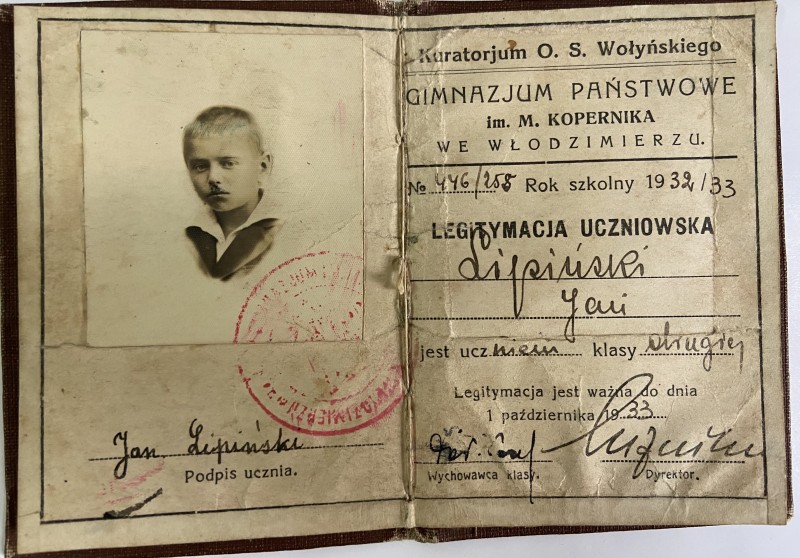 Jan Lipiński
Podpis ucznia.
Kuratorjum O. S. Wołyńskiego
GIMNAZJUM PAŃSTWOWE
im. M. KOPERNIKA
WE WŁODZIMIERZU.
№ 446/258 Rok szkolny 1932/33
LEGITYMACJA UCZNIOWSKA
Lipiński
Jan
jest uczniem klasy drugiej
Legitymacja jest ważna do dnia
1 października 1933
Wychowawca klasy. Dyrektor.